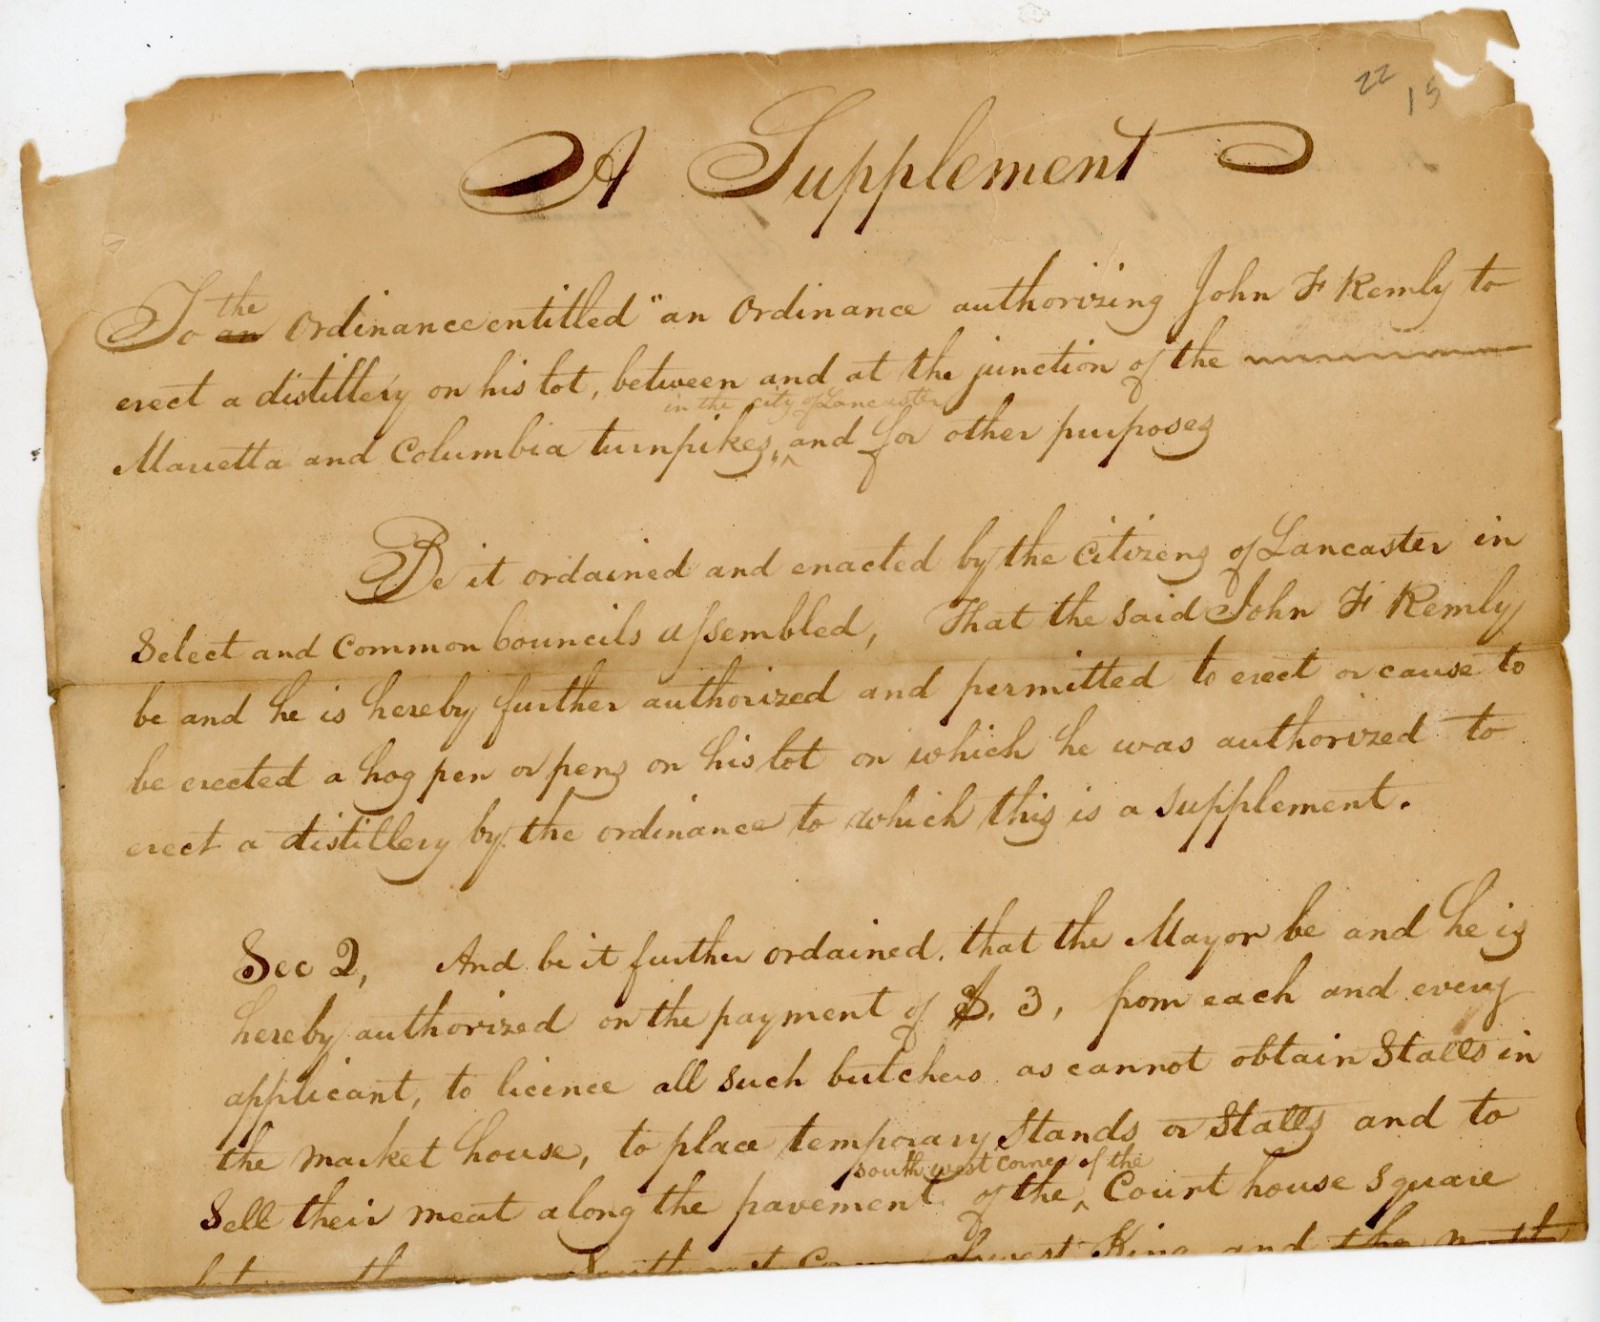 22
15
A Supplement
the
To an Ordinance entitled "an Ordinance authorizing John F Remly to
erect a distillery on his lot, between and at the junction of the
in the city of Lancaster
Marietta and Columbia turnpikes," and for other purposes
Be it ordained and enacted by the Citizens of Lancaster in
Select and Common Councils assembled, That the said John F Remly
be and he is hereby further authorized and permitted to erect or cause to
be erected a hog pen or pens on his lot on which he was authorized to
erect a distillery by the ordinance to which this is a supplement.
Sec 2, And be it further ordained, that the Mayor be and he is
hereby authorized on the payment of $. 3, from each and every
applicant, to licence all such butchers as cannot obtain Stalls in
the market house, to place temporary stands or Stalls and to
south west corner of the
Sell their meat along the pavement of the Court house square
King and the